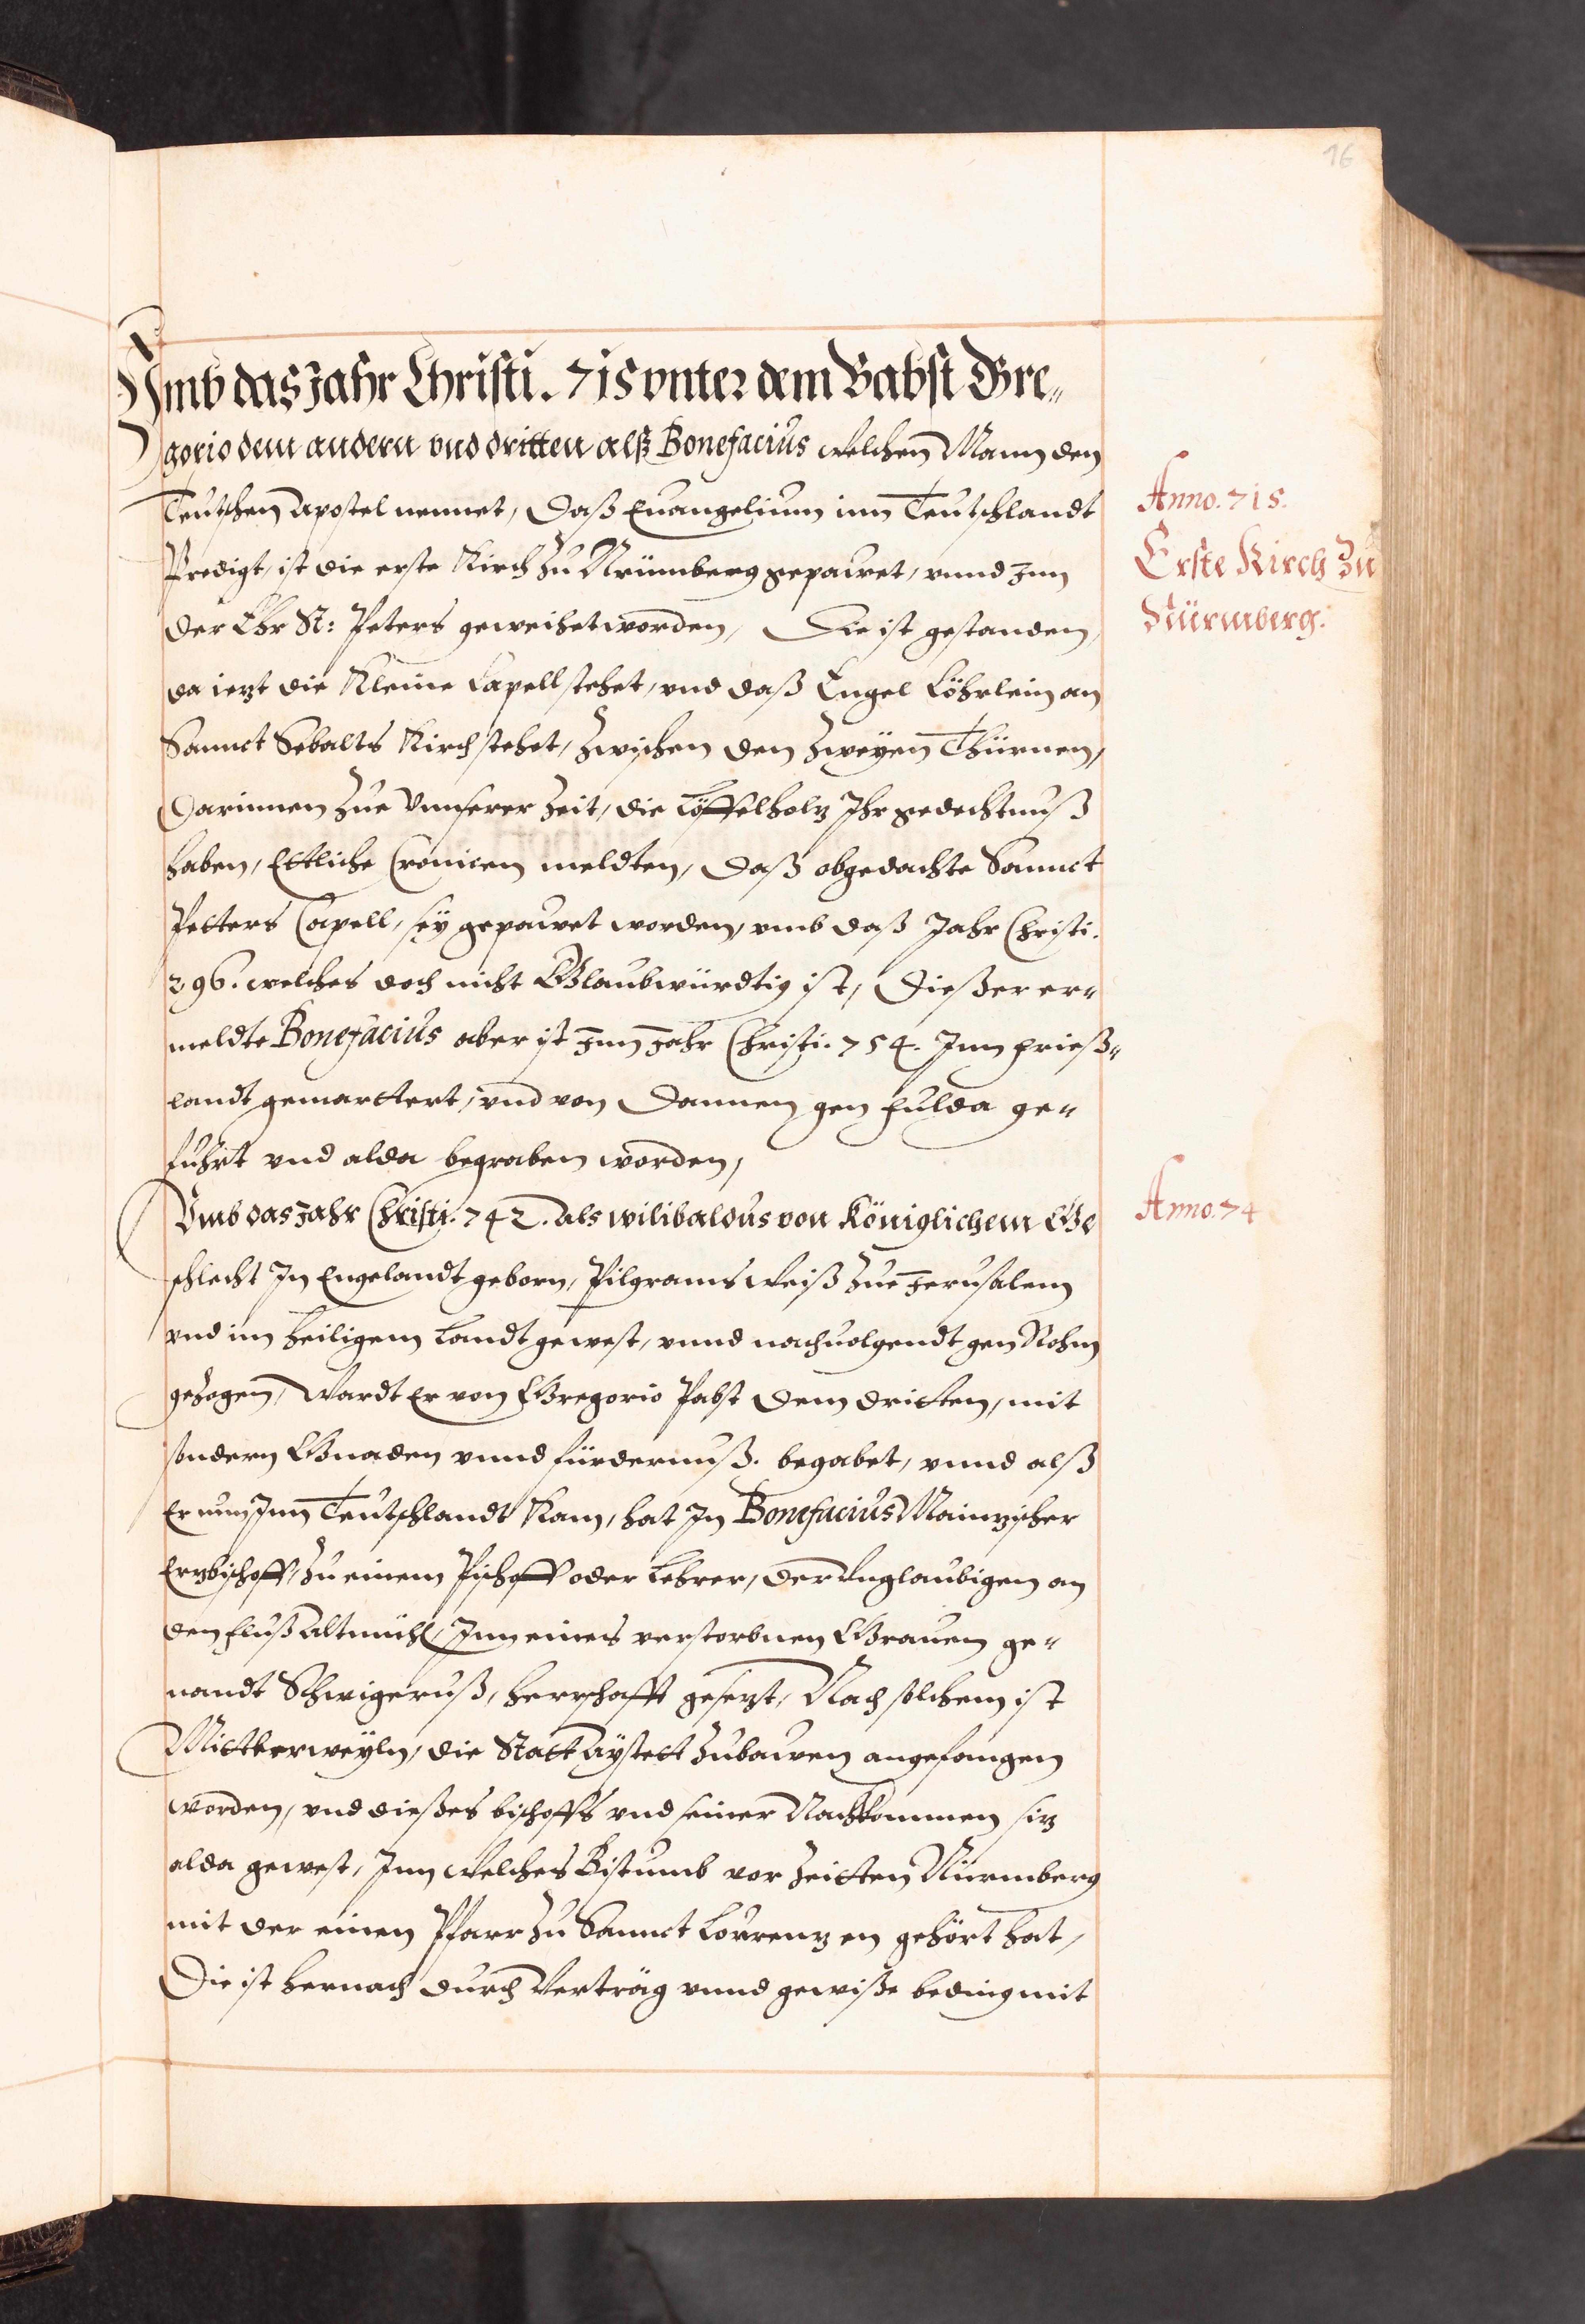 16
Vmb das Jahr Christi. 715 vnter dem Babst Gre„
gorio dem andern vnd dritten alß Bonefacius welchen Mann den
Teutschen Apostel nennet, Daß Euangelium inn Teutschlandt
Anno. 715.
Predigt, ist die erste Kirch zu Nürmberg gepauet, vnnd Inn
Erste Kirch Zu
der Ehr St: Peters geweihet worden, Die ist gestanden,
Nürmberg.
da iezt die Kleine Capell stehet, vnd daß Engel Cöhrlein an
Sannct Sebalts Kirch stehet, zwischen den zweyen Thürnen,
Darinnen zue Vnnserer Zeit, die Löffelholz Ihr gedechtnuß
haben, Ettliche Cronicen meldten, Daß obgedachte Sannct
Petters Capell, sey gepauet worden, vmb daß Jahr Christi.
296. welches doch nicht Glaubwürdtig ist, Dießer er„
meldte Bonefacius aber ist Inn Jahr Christi. 754. Inn frieß„
landt gemarttert, vnd von Dannen gen Fulda ge„
führt vnd alda begraben worden,
Vmb das Jahr Christi. 742. als wilibaldus von Königlichem Ge
Anno. 74
schlecht In Engelandt geborn, Pilgrams weiß zue Jerusalem
vnd im heiligem Landt gewest, vnnd nachuolgendt gen Rohm
gezogen, Wardt Er von Gregorio Pabst dem dritten, mit
sondern Gnaden vnnd fürdernuß. begabet, vnnd alß
Er nun Inn Teutschlandt Kam, hat In Bonefacius Mainzischer
Erzbischoff, zu einem Pischoff oder Lehrer, der Vnglaubigen an
den fluß Altmühl, Inn eines verstorbnen Grauen ge„
nandt Schwigeruß, herrschafft gesezt, Nach solchem ist
Mittlerweyln, die Statt Aystett zubauen angefangen
worden, vnd dießes bischoffs vnd seiner Nachkommen siz
alda gewest, Inn welches Bistumb vor Zeitten Nürmberg
mit der einen Pfarr zu Sannct Lorrenzen gehört hat,
Die ist hernach durch Verträg vnnd gewiße beding mit